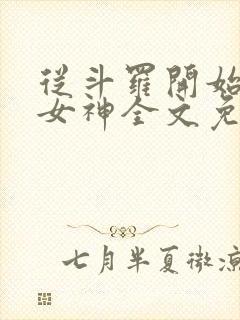 從斗羅開始
女神全文免
七月半夏微涼